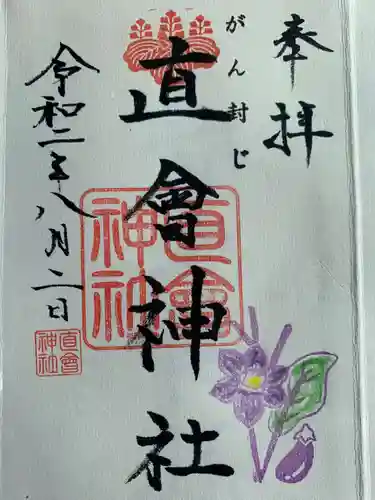 奉拝
がん封じ
直會神社
令和二年八月二日
直會神社
直會神社